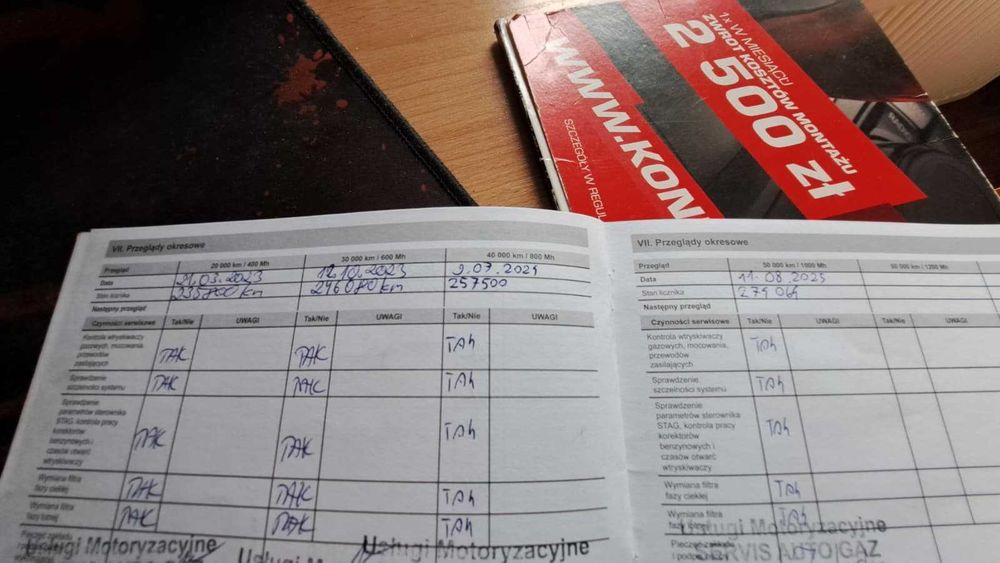 1x W MIESIĄCU
ZWROT KOSZTÓW MONTAŻU
2 500 zł
WWW.KON
SZCZEGÓŁY W REGUL
VII. Przeglądy okresowe
Przegląd 20 000 km / 400 Mh 30 000 km / 600 Mh 40 000 km / 800 Mh
Data 21.03.2023 12.10.2023 2.07.2024
Stan licznika 235800 km 246080 km 257500
Następny przegląd
Czynności serwisowe Tak/Nie UWAGI Tak/Nie UWAGI Tak/Nie UWAGI
Kontrola wtryskiwaczy
gazowych, mocowania,
przewodów
zasilających
TAK TAK TAK
Sprawdzenie
szczelności systemu
TAK TAK TAK
Sprawdzenie
parametrów sterownika
STAG, kontrola pracy
korektorów
benzynowych i
czasów otwarć
wtryskiwaczy
TAK TAK TAK
Wymiana filtra
fazy ciekłej
TAK TAK TAK
Wymiana filtra
fazy lotnej
TAK TAK TAK
Pieczęć zakładu
Usługi Motoryzacyjne
Usługi M
Usługi Motoryzacyjne
VII. Przeglądy okresowe
Przegląd 50 000 km / 1000 Mh 60 000 km / 1200 Mh
Data 11.08.2025
Stan licznika 274 064
Następny przegląd
Czynności serwisowe Tak/Nie UWAGI Tak/Nie UWAGI
Kontrola wtryskiwaczy
gazowych, mocowania,
przewodów
zasilających
TAK
Sprawdzenie
szczelności systemu
TAK
Sprawdzenie
parametrów sterownika
STAG, kontrola pracy
korektorów
benzynowych i
czasów otwarć
wtryskiwaczy
TAK
Wymiana filtra
fazy ciekłej
TAK
Wymiana filtra
fazy lotnej
TAK
Pieczęć zakładu
Usługi Motoryzacyjne
SERWIS AUTO GAZ